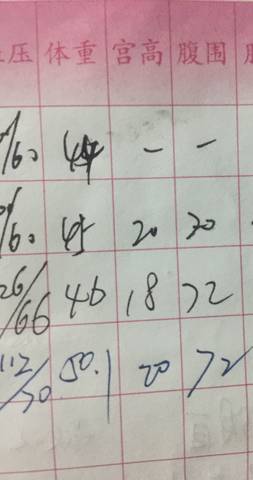 压 体重 宫高 腹围
/60 44 — —
/60 45 20 70
26/66 46 18 72
112/70 50.1 20 72